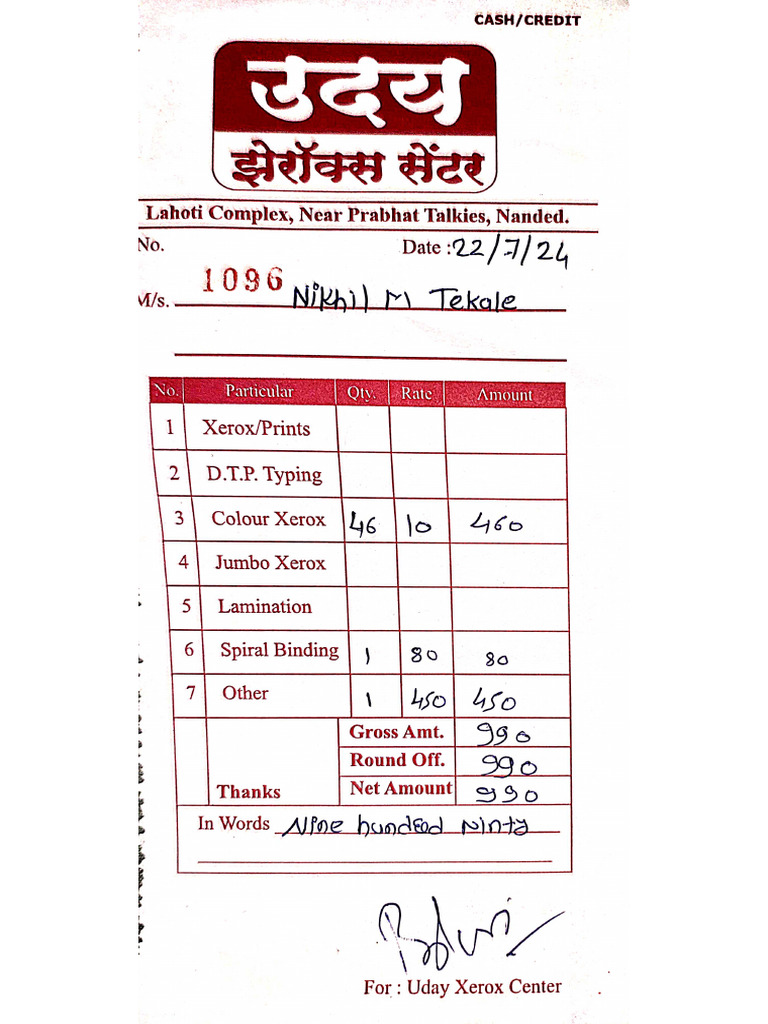 CASH/CREDIT
उदय
झेरॉक्स सेंटर
Lahoti Complex, Near Prabhat Talkies, Nanded.
No. 1096 Date : 22/7/24
M/s. Nikhil M Tekale
No. Particular Qty. Rate Amount
1 Xerox/Prints
2 D.T.P. Typing
3 Colour Xerox 46 10 460
4 Jumbo Xerox
5 Lamination
6 Spiral Binding 1 80 80
7 Other 1 450 450
Gross Amt. 990
Round Off. 990
Thanks Net Amount 990
In Words Nine hundred Ninty
For : Uday Xerox Center